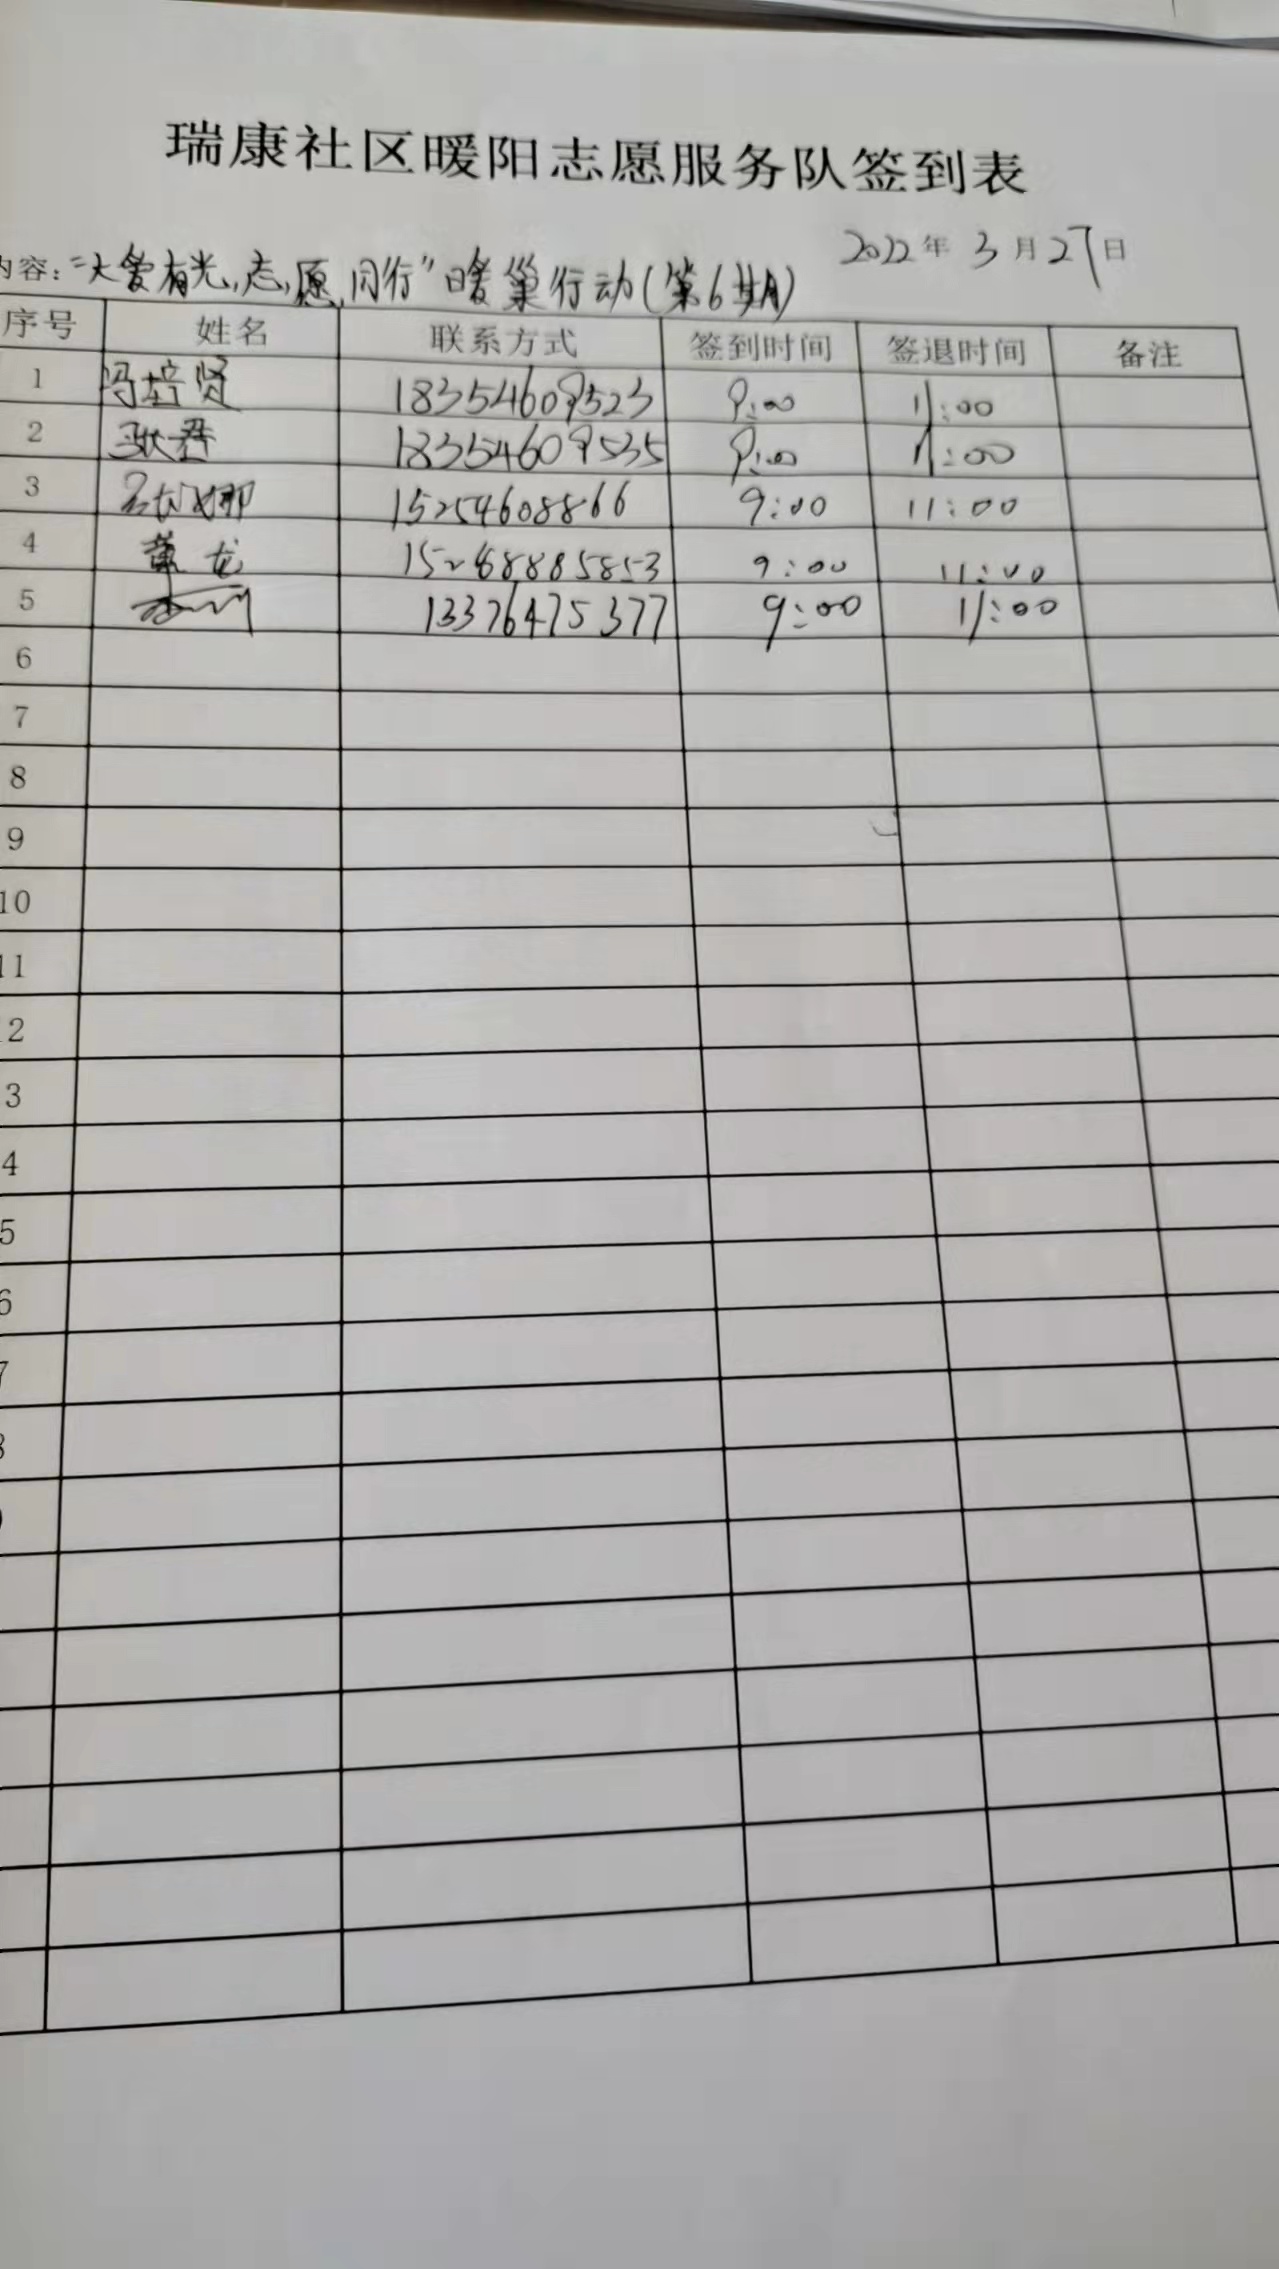 瑞康社区暖阳志愿服务队签到表
2022年3月27日
内容："大爱有光,志愿同行"暖巢行动(第6期)
序号 姓名 联系方式 签到时间 签退时间 备注
1 冯培贤 18354609523 9:00 11:00
2 18354609535 9:00 11:00
3 15254608866 9:00 11:00
4 龙 9:00 11:00
5 13376475377 9:00 11:00
6
7
8
9
10
11
2
3
4
5
6
7